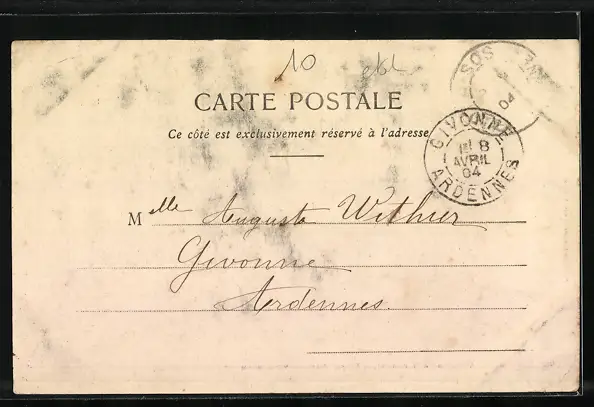 10
CARTE POSTALE
Ce côté est exclusivement réservé à l'adresse
GIVONNE
8
AVRIL
04
ARDENNES
04
Melle Augusta Withier
Givonne
Ardennes.